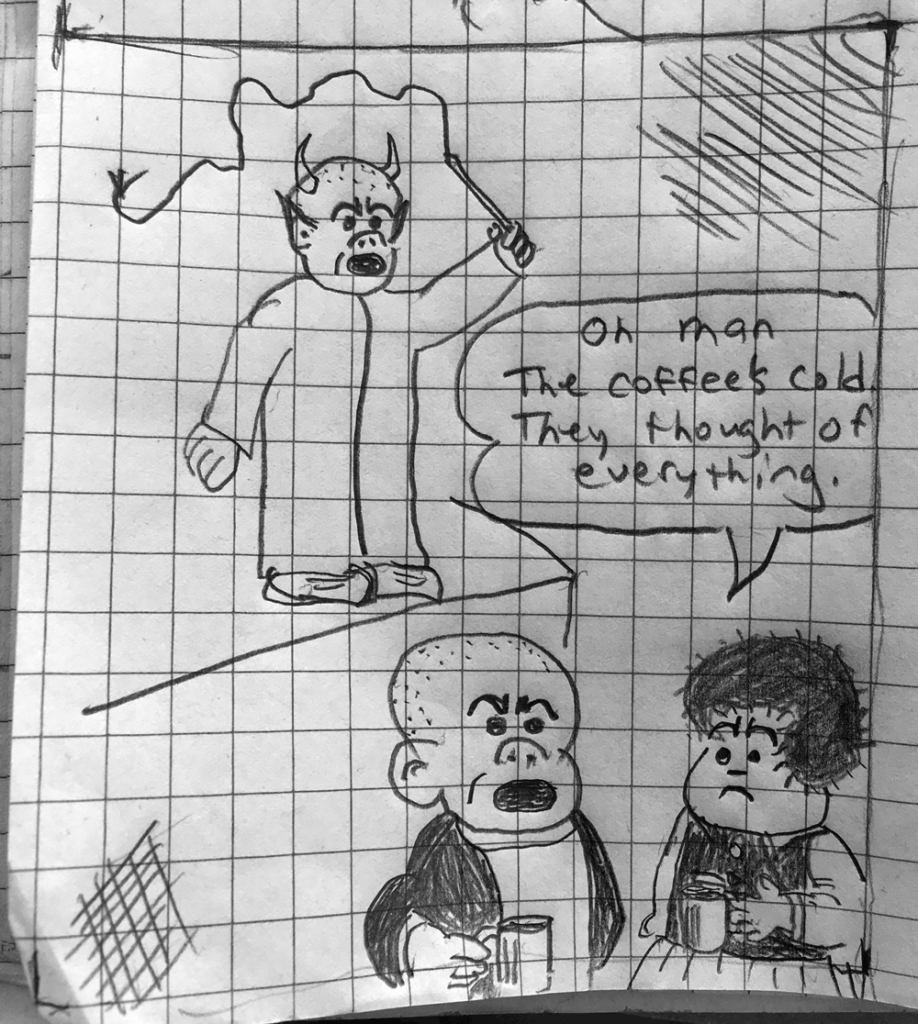 Oh man
The coffee's cold.
They thought of
everything.